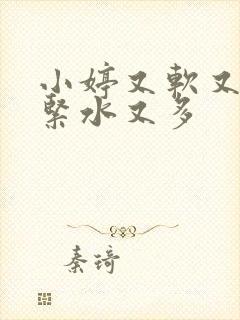 小婷又軟又
緊水又多
秦琦